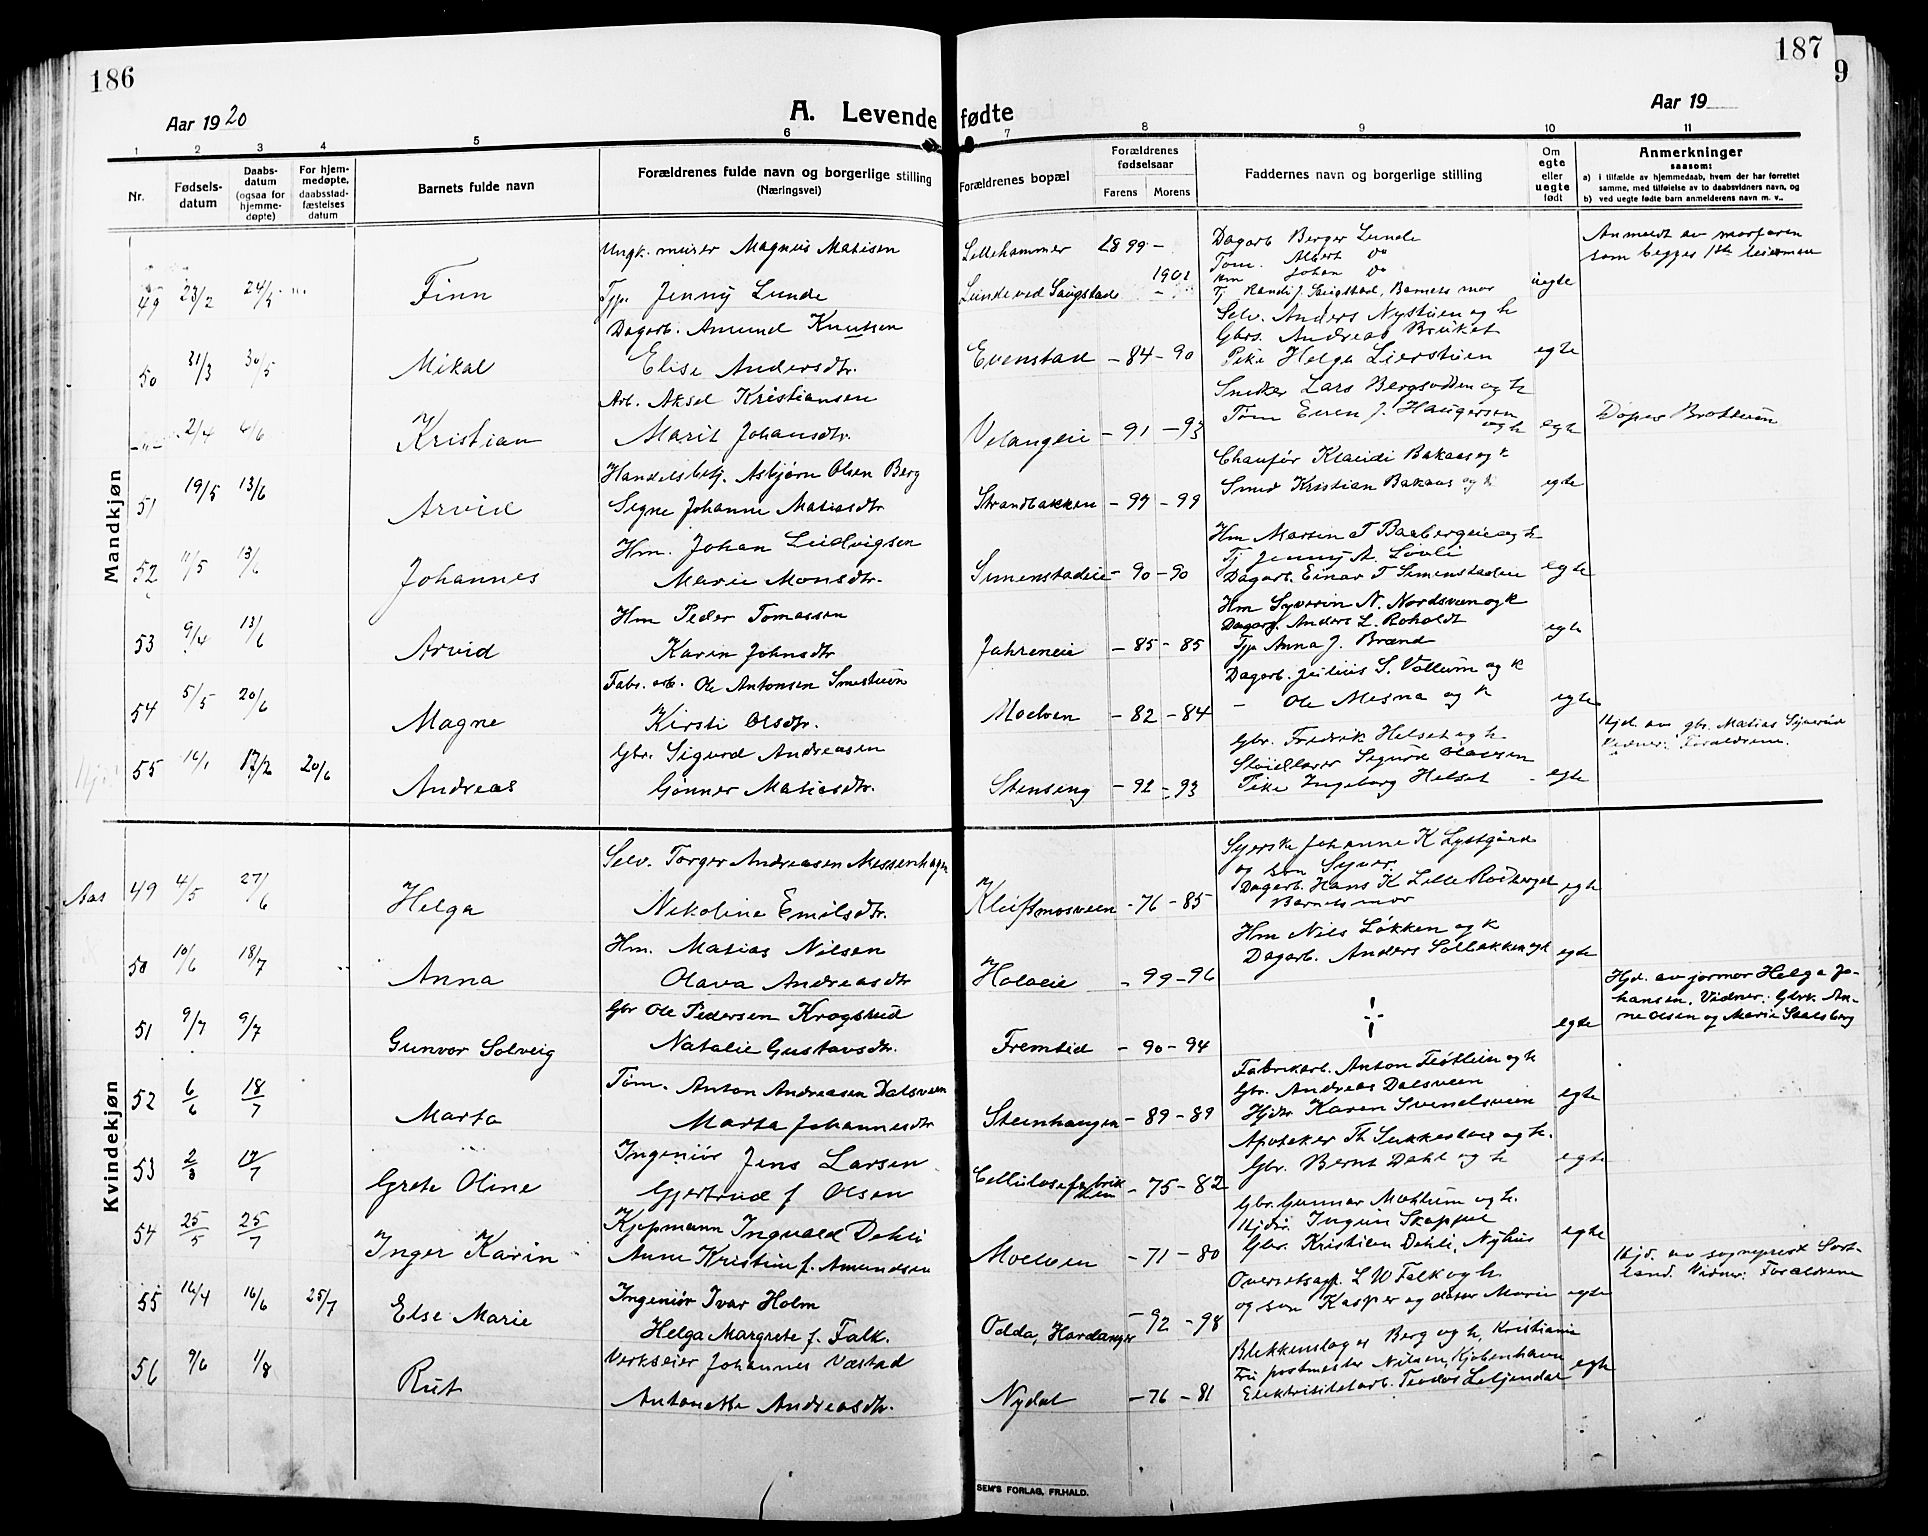 186
187
9
Aar 1920
A. Levende fødte
Aar 19
1 2 3 4 5 6 7 8 9 10 11
Nr.
Fødsels-
datum
Daabs-
datum
(ogsaa for
hjemme-
døpte)
For hjem-
medøpte,
daabsstad-
fæstelses
datum
Barnets fulde navn
Forældrenes fulde navn og borgerlige stilling
(Næringsvei)
Forældrenes bopæl
Forældrenes
fødselsaar
Farens Morens
Faddernes navn og borgerlige stilling
Om
egte
eller
uegte
født
Anmerkninger
saasom:
a) i tilfælde av hjemmedaab, hvem der har forrettet
samme, med tilføielse av to daabsvidners navn, og
b) ved uegte fødte barn anmelderens navn m. v..
Mandkjøn
Ungk. murer Magnus Matisen Lillehammer 1899 - Dagarb. Berger Lunde Anmeldt av morfaren
Tøm. Albert Do som begges 1ste leiermaal
49 23/2 24/5 Finn Tjp. Jenny Lunde Lunde ved Saugstad 1901 Hm Johan Do uegte
Tj Randi J. Saugstad, Barnets mor
Dagarb. Amund Knutsen Selv. Anders Nystuen og h
Gbrs. Andreas Bruket
50 31/3 30/5 Mikal Elise Andersdtr. Evenstad - 84 - 90 Pike Helga Lierstuen egte
Arb. Aksel Kristiansen Snekker Lars Bergsodden og h
-"- 2/4 6/6 Kristian Marit Johansdtr. Velangeie - 91 - 93 Tøm Even J. Haugersen og h egte Døpes Brøttum
Handelsbetj. Asbjørn Olsen Berg Chaufør Klaudi Bakaas og k
51 19/5 13/6 Arvid Signe Johanne Matiasdtr Strandbakken - 99 - 99 Smed Kristian Bakaas og k egte
Hm. Johan Ludvigsen Hm Martin T Baabergeie og h
Tj Jenny A. Løvli
52 11/5 13/6 Johannes Marie Monsdtr. Simenstadeie - 90 - 90 Dagarb. Einar T Simenstadeie egte
Hm Peder Tomassen Hm Syverin N. Nordsveen og k
Dagarb. Anders L. Roholdt
53 9/4 13/6 Arvid Karin Johnsdtr Jahreneie - 85 - 85 Tjp Anna J. Brænd egte
Fabr. arb. Ole Antonsen Smestuen Dagarb. Julius S. Vollum og k
54 5/5 20/6 Magne Kirsti Olsdtr. Moelven - 82 - 84 - Ole Mesna og k egte
Gbr. Sigurd Andreasen Gbr. Fredrik Helset og h Hjd. av gbr. Matias
Sløidlærer Sigurd Olausen Vidner: Forældrene.
55 16/1 17/2 20/6 Andreas Gonner Matiasdtr. Stenseng - 92 - 93 Pike Ingeborg Helset - egte
Kvindekjøn
Selv. Torger Andreasen Messenhagen Syerske Johanne K Lystgård
og søn Syver
Aas 49 4/5 27/6 Helga Nikoline Emilsdtr. Kluftmosveen - 76 - 85 Dagarb. Hans K Lille Rodberget egte
Barnets mor
Hm. Matias Nilsen Hm Nils Løkken og k
50 10/6 18/7 Anna Olava Andreasdtr Holoeie - 99 - 96 Dagarb. Anders Solløkken og h egte
Gbr Ole Pedersen Krogsrud Hjd. av jormor Helga Jo-
hansen. Vidner: Gbrk. An-
51 9/7 9/7 Gunvor Solveig Natalie Gustavsdtr. Fremtid - 90 - 94 egte ne Olsen og Marie Skalsberg
Tøm. Anton Andreasen Dalsveen Fabrikarb. Anton Tøstlien og h
Gbr. Andreas Dalsveen
52 6/6 18/7 Marta Marta Johannesdtr Stenhaugen - 89 - 89 Hjdtr Karen Svendsveen egte
Ingeniør Jens Larsen Apoteker Th Sukkestad og h.
53 2/3 17/7 Grete Oline Gjertrud f Olsen Cellulosefabrikken - 75 - 82 Gbr. Bernt Dahl og h egte
Kjøpmann Ingvald Dehli Gbr. Gunnar Mæhlum og h.
Hjdtr. Ingrin Skappel
54 25/5 25/7 Inger Karin Anne Kristine f. Amundsen Moelven - 71 - 80 Gbr. Kristian Dehli, Nyhus egte
Ingeniør Ivar Holm Overretssagf. L W Falk og h. Hjd. av sogneprest Sort-
land. Vidner: Forældrene
55 16/4 16/6 25/7 Else Marie Helga Margrete f. Falk. Odda, Hardanger - 92 - 98 og søn Kasper og datter Marie egte
Verkseier Johannes Væstad Blekkenslager Berg og h, Kristiania
Fru postmester Nilsen, Kjøbenhavn
56 9/6 1/8 Rut Antonette Andreasdtr. Nydal - 76 - 81 Elektrisitetarb. Teodor Liljendal egte
SEM'S FORLAG, FR.HALD.